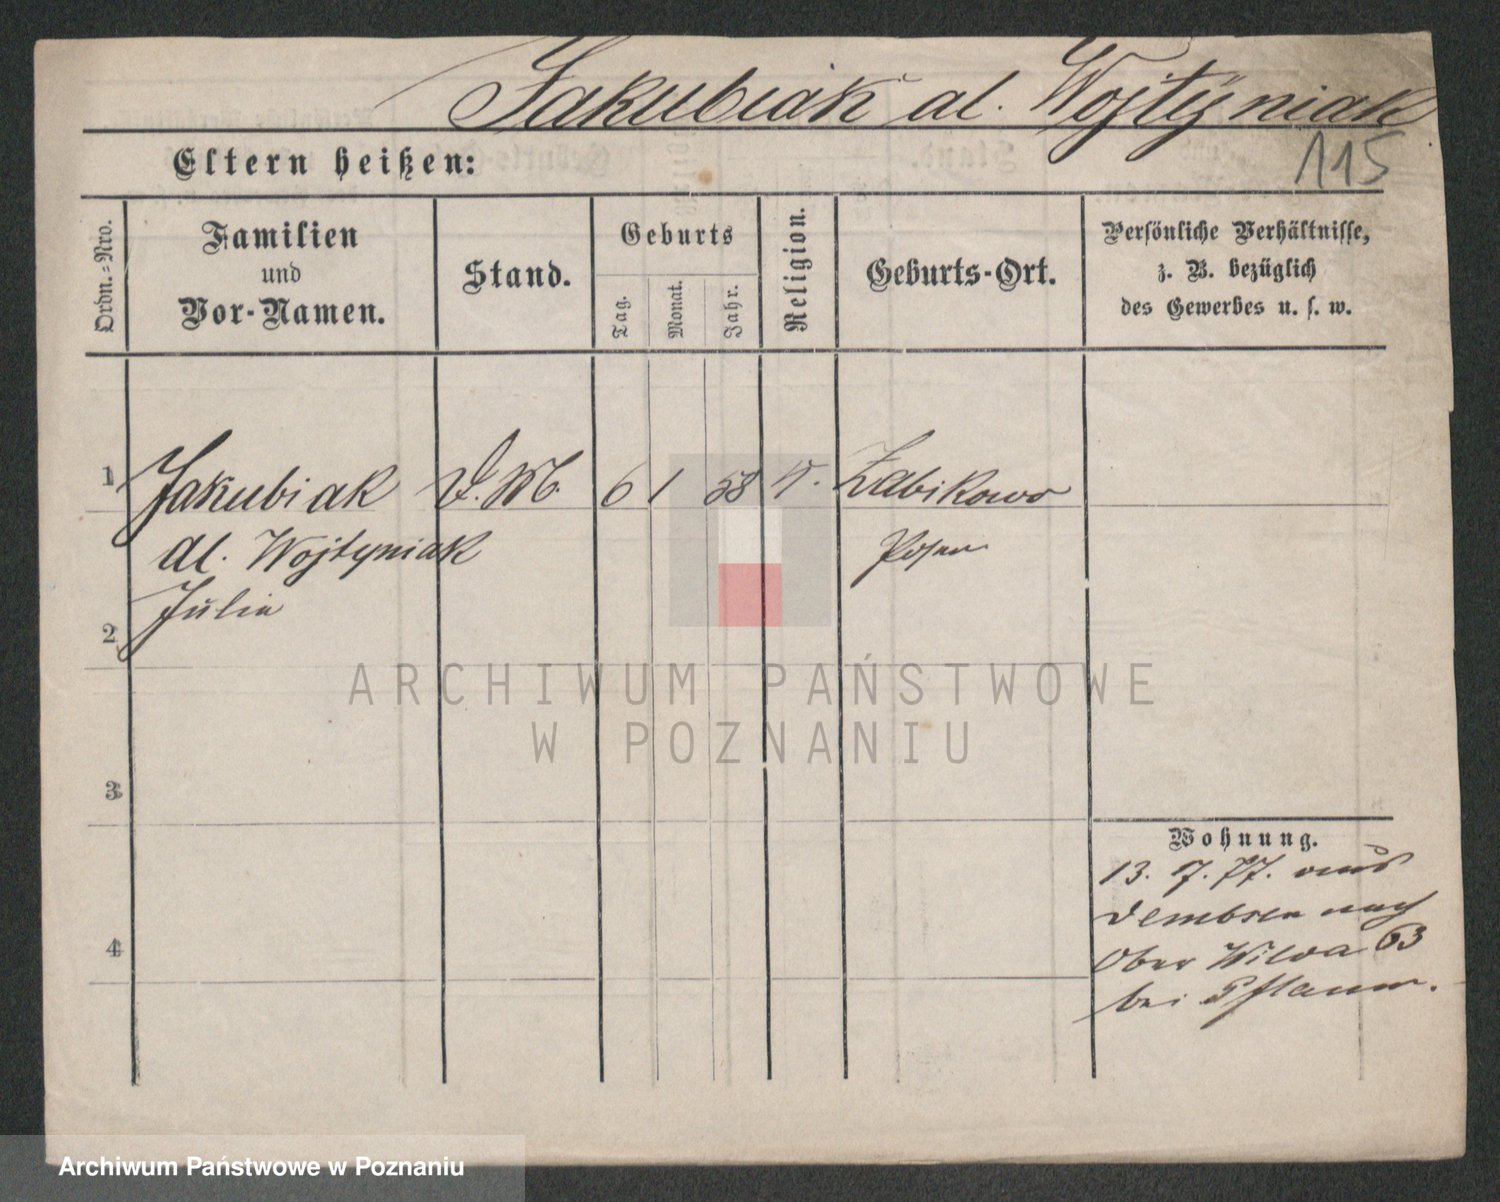 Jakubiak al. Wojtyniak
115
Eltern heißen:
Ordn.-Nro.
Familien
und
Vor-Namen.
Stand.
Geburts
Tag.
Monat.
Jahr.
Religion.
Geburts-Ort.
Persönliche Verhältnisse,
z. B. bezüglich
des Gewerbes u. s. w.
1 Jakubiak D. M. 6 1 58 K. Zabikowo
al. Wojtyniak Posen
Julie
2
3
4
Wohnung.
13. 7. 77. aus
Dembsen nach
Ober Wilda 63
bei Pflaum.
ARCHIWUM PAŃSTWOWE
W POZNANIU
Archiwum Państwowe w Poznaniu